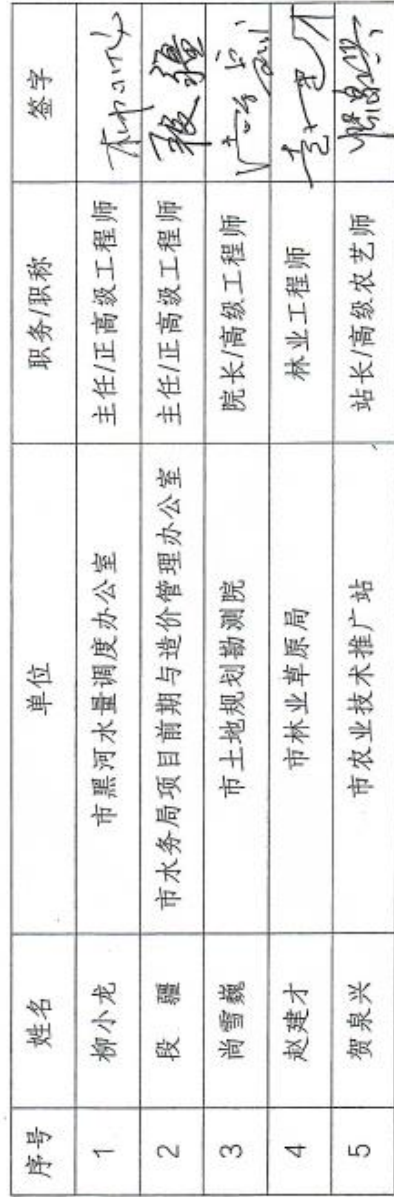 序号 姓名 单位 职务/职称 签字
1 柳小龙 市黑河水量调度办公室 主任/正高级工程师
2 段疆 市水务局项目前期与造价管理办公室 主任/正高级工程师 段疆
3 尚雪巍 市土地规划勘测院 院长/高级工程师
4 赵建才 市林业草原局 林业工程师
5 贺泉兴 市农业技术推广站 站长/高级农艺师